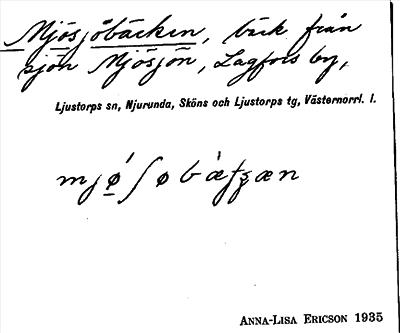 Mjösjöbäcken, bäck från
sjön Mjösjön, Lagfors by,
Ljustorps sn, Njurunda, Sköns och Ljustorps tg, Västernorrl. l.
mjǿʃøbæ̀tʒæn
ANNA-LISA ERICSON 1935